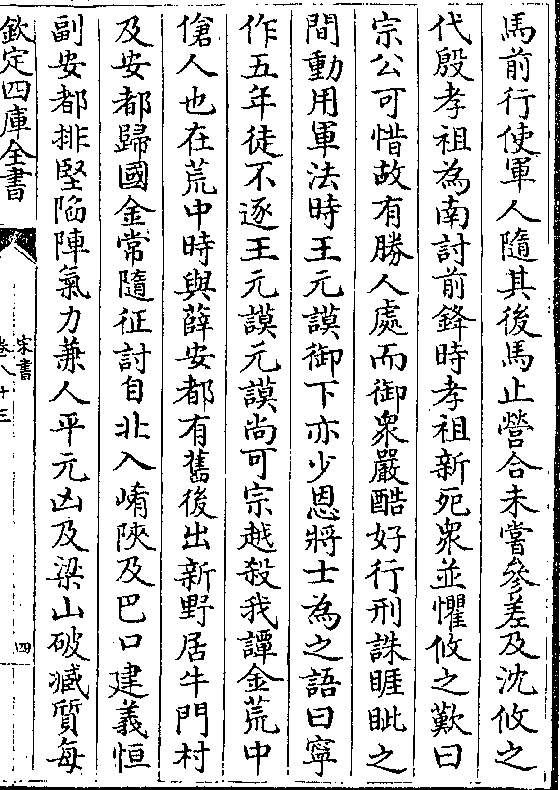 馬前行使軍人隨其後馬止營合未嘗參差及沈攸之
代殷孝祖為南討前鋒時孝祖新死衆並懼攸之歎曰
宗公可惜故有勝人處而御衆嚴酷好行刑誅睚眦之
間動用軍法時王元謨御下亦少恩將士為之語曰寧
作五年徒不逐王元謨元謨尚可宗越殺我譚金荒中
傖人也在荒中時與薛安都有舊後出新野居牛門村
及安都歸國金常隨征討自北入崤陝及巴口建義恒
副安都排堅陷陣氣力兼人平元凶及梁山破臧質每
欽定四庫全書
宋書
卷八十三
四